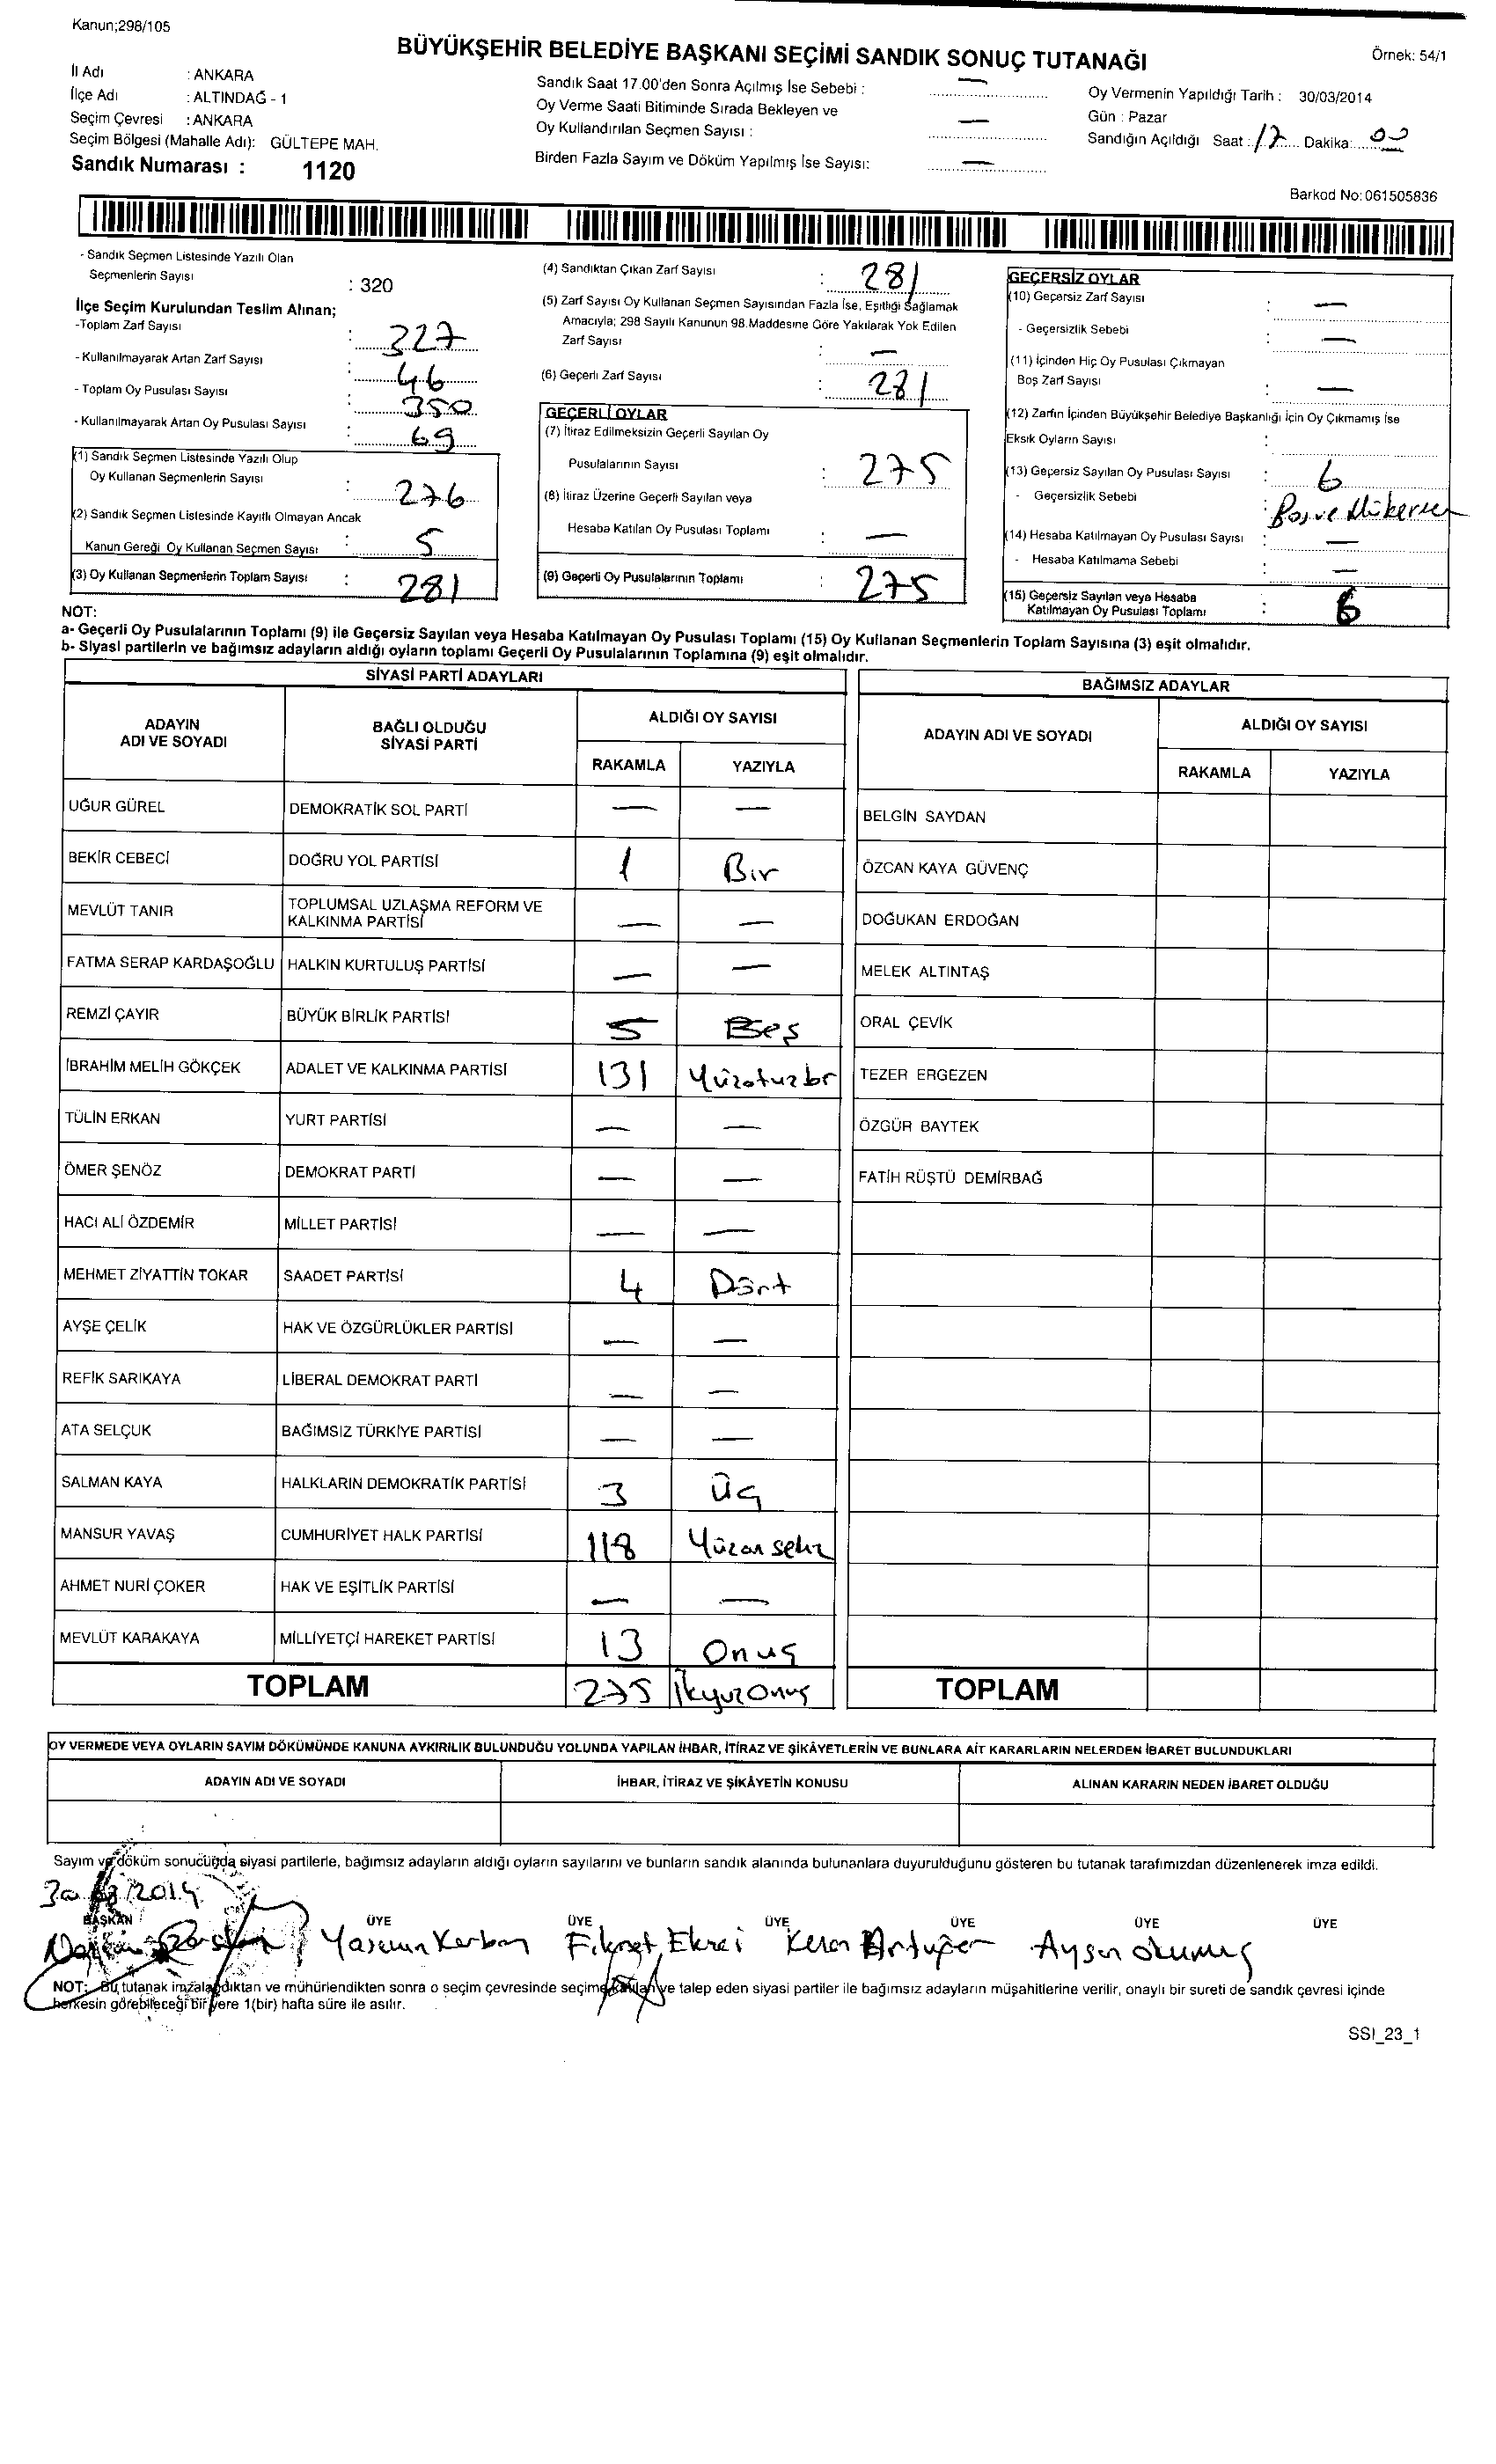 Kanun;298/105
BÜYÜKŞEHİR BELEDİYE BAŞKANI SEÇİMİ SANDIK SONUÇ TUTANAĞI
Örnek: 54/1
İl Adı : ANKARA
İlçe Adı : ALTINDAĞ - 1
Seçim Çevresi : ANKARA
Seçim Bölgesi (Mahalle Adı): GÜLTEPE MAH.
Sandık Numarası : 1120
Sandık Saat 17.00'den Sonra Açılmış İse Sebebi : —
Oy Verme Saati Bitiminde Sırada Bekleyen ve
Oy Kullandırılan Seçmen Sayısı : —
Birden Fazla Sayım ve Döküm Yapılmış İse Sayısı: —
Oy Vermenin Yapıldığı Tarih : 30/03/2014
Gün : Pazar
Sandığın Açıldığı Saat : 17 Dakika: 00
Barkod No: 061505836
- Sandık Seçmen Listesinde Yazılı Olan
Seçmenlerin Sayısı : 320
İlçe Seçim Kurulundan Teslim Alınan;
-Toplam Zarf Sayısı : 327
- Kullanılmayarak Artan Zarf Sayısı : 46
- Toplam Oy Pusulası Sayısı : 350
- Kullanılmayarak Artan Oy Pusulası Sayısı : 69
(1) Sandık Seçmen Listesinde Yazılı Olup
Oy Kullanan Seçmenlerin Sayısı : 276
(2) Sandık Seçmen Listesinde Kayıtlı Olmayan Ancak
Kanun Gereği Oy Kullanan Seçmen Sayısı : 5
(3) Oy Kullanan Seçmenlerin Toplam Sayısı : 281
(4) Sandıktan Çıkan Zarf Sayısı : 281
(5) Zarf Sayısı Oy Kullanan Seçmen Sayısından Fazla İse, Eşitliği Sağlamak
Amacıyla; 298 Sayılı Kanunun 98.Maddesine Göre Yakılarak Yok Edilen
Zarf Sayısı : —
(6) Geçerli Zarf Sayısı : 281
GEÇERLİ OYLAR
(7) İtiraz Edilmeksizin Geçerli Sayılan Oy
Pusulalarının Sayısı : 275
(8) İtiraz Üzerine Geçerli Sayılan veya
Hesaba Katılan Oy Pusulası Toplamı : —
(9) Geçerli Oy Pusulalarının Toplamı : 275
GEÇERSİZ OYLAR
(10) Geçersiz Zarf Sayısı : —
- Geçersizlik Sebebi : —
(11) İçinden Hiç Oy Pusulası Çıkmayan
Boş Zarf Sayısı : —
(12) Zarfın İçinden Büyükşehir Belediye Başkanlığı İçin Oy Çıkmamış İse
Eksik Oyların Sayısı :
(13) Geçersiz Sayılan Oy Pusulası Sayısı : 6
- Geçersizlik Sebebi : Boş ve Mükerrer
(14) Hesaba Katılmayan Oy Pusulası Sayısı : —
- Hesaba Katılmama Sebebi : —
(15) Geçersiz Sayılan veya Hesaba
Katılmayan Oy Pusulası Toplamı : 6
NOT:
a- Geçerli Oy Pusulalarının Toplamı (9) ile Geçersiz Sayılan veya Hesaba Katılmayan Oy Pusulası Toplamı (15) Oy Kullanan Seçmenlerin Toplam Sayısına (3) eşit olmalıdır.
b- Siyasi partilerin ve bağımsız adayların aldığı oyların toplamı Geçerli Oy Pusulalarının Toplamına (9) eşit olmalıdır.
SİYASİ PARTİ ADAYLARI
BAĞIMSIZ ADAYLAR
ADAYIN ADI VE SOYADI
BAĞLI OLDUĞU SİYASİ PARTİ
ALDIĞI OY SAYISI
RAKAMLA YAZIYLA
ADAYIN ADI VE SOYADI
ALDIĞI OY SAYISI
RAKAMLA YAZIYLA
UĞUR GÜREL DEMOKRATİK SOL PARTİ — — BELGİN SAYDAN
BEKİR CEBECİ DOĞRU YOL PARTİSİ 1 Bir ÖZCAN KAYA GÜVENÇ
MEVLÜT TANIR TOPLUMSAL UZLAŞMA REFORM VE KALKINMA PARTİSİ — — DOĞUKAN ERDOĞAN
FATMA SERAP KARDAŞOĞLU HALKIN KURTULUŞ PARTİSİ — — MELEK ALTINTAŞ
REMZİ ÇAYIR BÜYÜK BİRLİK PARTİSİ 5 Beş ORAL ÇEVİK
İBRAHİM MELİH GÖKÇEK ADALET VE KALKINMA PARTİSİ 131 Yüzotuzbr TEZER ERGEZEN
TÜLİN ERKAN YURT PARTİSİ — — ÖZGÜR BAYTEK
ÖMER ŞENÖZ DEMOKRAT PARTİ — — FATİH RÜŞTÜ DEMİRBAĞ
HACI ALİ ÖZDEMİR MİLLET PARTİSİ — —
MEHMET ZİYATTİN TOKAR SAADET PARTİSİ 4 Dört
AYŞE ÇELİK HAK VE ÖZGÜRLÜKLER PARTİSİ — —
REFİK SARIKAYA LİBERAL DEMOKRAT PARTİ — —
ATA SELÇUK BAĞIMSIZ TÜRKİYE PARTİSİ — —
SALMAN KAYA HALKLARIN DEMOKRATİK PARTİSİ 3 Üç
MANSUR YAVAŞ CUMHURİYET HALK PARTİSİ 118 Yüzon sekiz
AHMET NURİ ÇOKER HAK VE EŞİTLİK PARTİSİ — —
MEVLÜT KARAKAYA MİLLİYETÇİ HAREKET PARTİSİ 13 Onuç
TOPLAM 275 TOPLAM
OY VERMEDE VEYA OYLARIN SAYIM DÖKÜMÜNDE KANUNA AYKIRILIK BULUNDUĞU YOLUNDA YAPILAN İHBAR, İTİRAZ VE ŞİKÂYETLERİN VE BUNLARA AİT KARARLARIN NELERDEN İBARET BULUNDUKLARI
ADAYIN ADI VE SOYADI İHBAR, İTİRAZ VE ŞİKÂYETİN KONUSU ALINAN KARARIN NEDEN İBARET OLDUĞU
Sayım ve döküm sonucunda siyasi partilerle, bağımsız adayların aldığı oyların sayılarını ve bunların sandık alanında bulunanlara duyurulduğunu gösteren bu tutanak tarafımızdan düzenlenerek imza edildi.
30/03/2014
BAŞKAN ÜYE ÜYE ÜYE ÜYE ÜYE ÜYE
Yasemin Fikret Aysen
NOT: Bu tutanak imzalandıktan ve mühürlendikten sonra o seçim çevresinde seçime katılan ve talep eden siyasi partiler ile bağımsız adayların müşahitlerine verilir, onaylı bir sureti de sandık çevresi içinde
herkesin görebileceği bir yere 1(bir) hafta süre ile asılır.
SSI_23_1